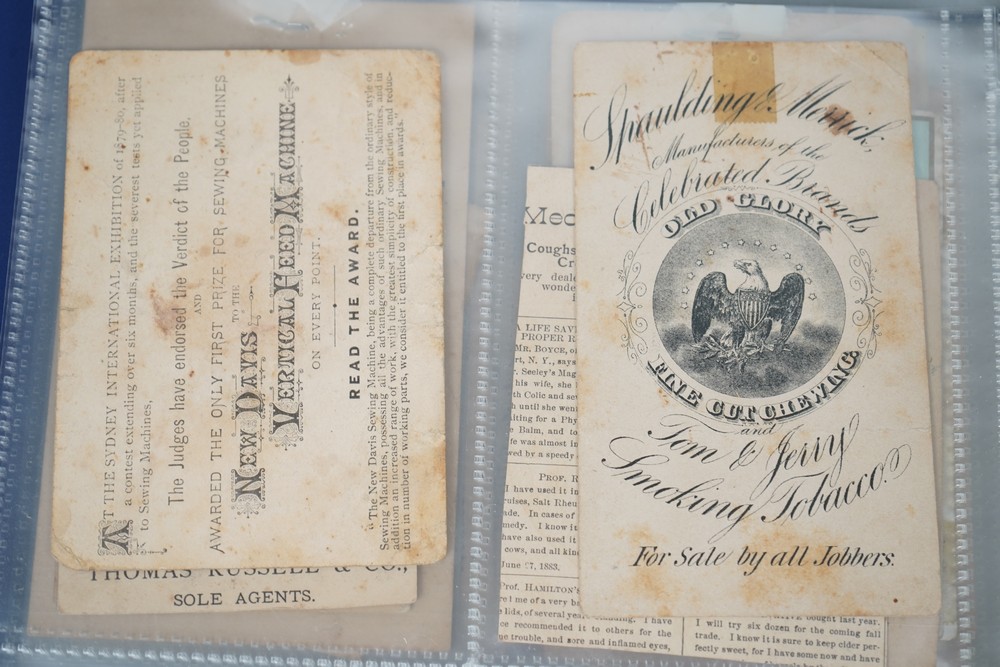 AT THE SYDNEY INTERNATIONAL EXHIBITION of 1879-80, after
a contest extending over six months, and the severest tests yet applied
to Sewing Machines,
The Judges have endorsed the Verdict of the People,
AND
AWARDED THE ONLY FIRST PRIZE FOR SEWING MACHINES
TO THE
NEW DAVIS
VERTICAL FEED MACHINE
ON EVERY POINT.
READ THE AWARD.
"The New Davis Sewing Machine, being a complete departure from the ordinary style of
Sewing Machines, possessing all the advantages of such ordinary Sewing Machines, and in
addition an increased range of work, with the greatest simplicity of construction, and reduc-
tion in number of working parts, we consider it entitled to the first place in awards."
THOMAS RUSSELL & CO.,
SOLE AGENTS.
Spaulding & Merrick,
Manufacturers of the
Celebrated Brands
OLD GLORY
FINE CUT CHEWING
and
Tom & Jerry
Smoking Tobacco.
For Sale by all Jobbers.
Coughs
Cr
very deale
wonde
A LIFE SAV
PROPER R
MR. BOYCE, o
rt, N. Y., says
r. Seeley's Mag
his wife, she
th Colic and sev
h until she wen
iting for a Phy
e Balm, and to
fe was almost in
wed by a speedy
PROF. R
I have used it in
ruises, Salt Rheu
ade. In cases of
medy. I know it
have also used it
cows, and all kin
June 27, 1883.
Prof. HAMILTON'S
re me of a very ba
lids, of several years standing. I have
ce recommended it to others for the
me trouble, and sore and inflamed eyes,
bought last year.
I will try six dozen for the coming fall
trade. I know it is sure to keep cider per-
fectly sweet, for I have some now and have